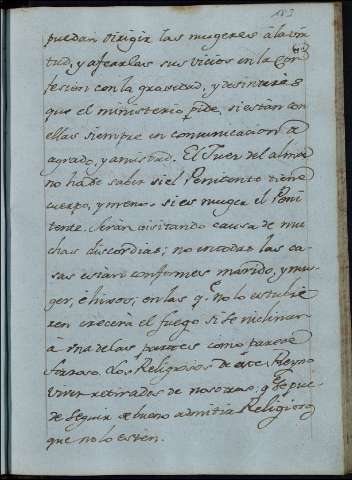 183
puedan dirigir las mugeres à la vir
tud, y afearlas sus vicios en la Con
fesion con la gravedad, y desinteres
que el ministerio pide, si estàn con
ellas siempre en comunicacion de
agrado, y amistad. El Juez del alma
no hà de saber si el Penitente tiene
cuerpo, y menos si es muger el Peni
tente. Seràn visitando causa de mu
chas discordias; no en todas las ca
sas estàn conformes marido, y mu-
ger, è hijos; en las q.e no lo estubie
ren crecerà el fuego si se inclinan
à vna de las partes como parece
forzoso. Los Religiosos de este Reyno
viven retirados de nosotras, q.e se pue
de seguir de bueno admitir Religiosos
que no lo esten.